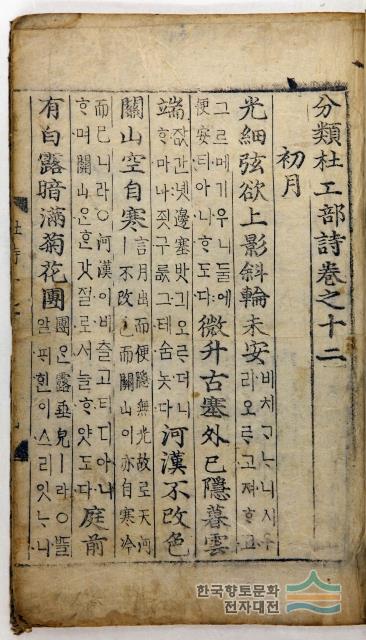 分類杜工部詩卷之十二
初月
光細弦欲上影斜輪未安비치ᄀᆞᄂᆞ니시우리오ᄅᆞ고져ᄒᆞ고
그르메기우니둘에便安티아니ᄒᆞ도다微升古塞外已隱暮雲
端잢간녯邊塞밧긔오ᄅᆞ더니ᄒᆞ마나죗구룺그테숨놋다河漢不改色
關山空自寒言月出而便隱無光故로天河ㅣ不改而關山이亦自寒冷
而已니라○河漢이비츨고티디아니ᄒᆞ며關山은ᄒᆞᆫ갓절로서늘ᄒᆞ얏도다庭前
有白露暗滿菊花團團은露垂皃ㅣ라○ᄠᅳᆯ알ᄑᆡ힌이스리잇ᄂᆞ니
한국향토문화
전자대전